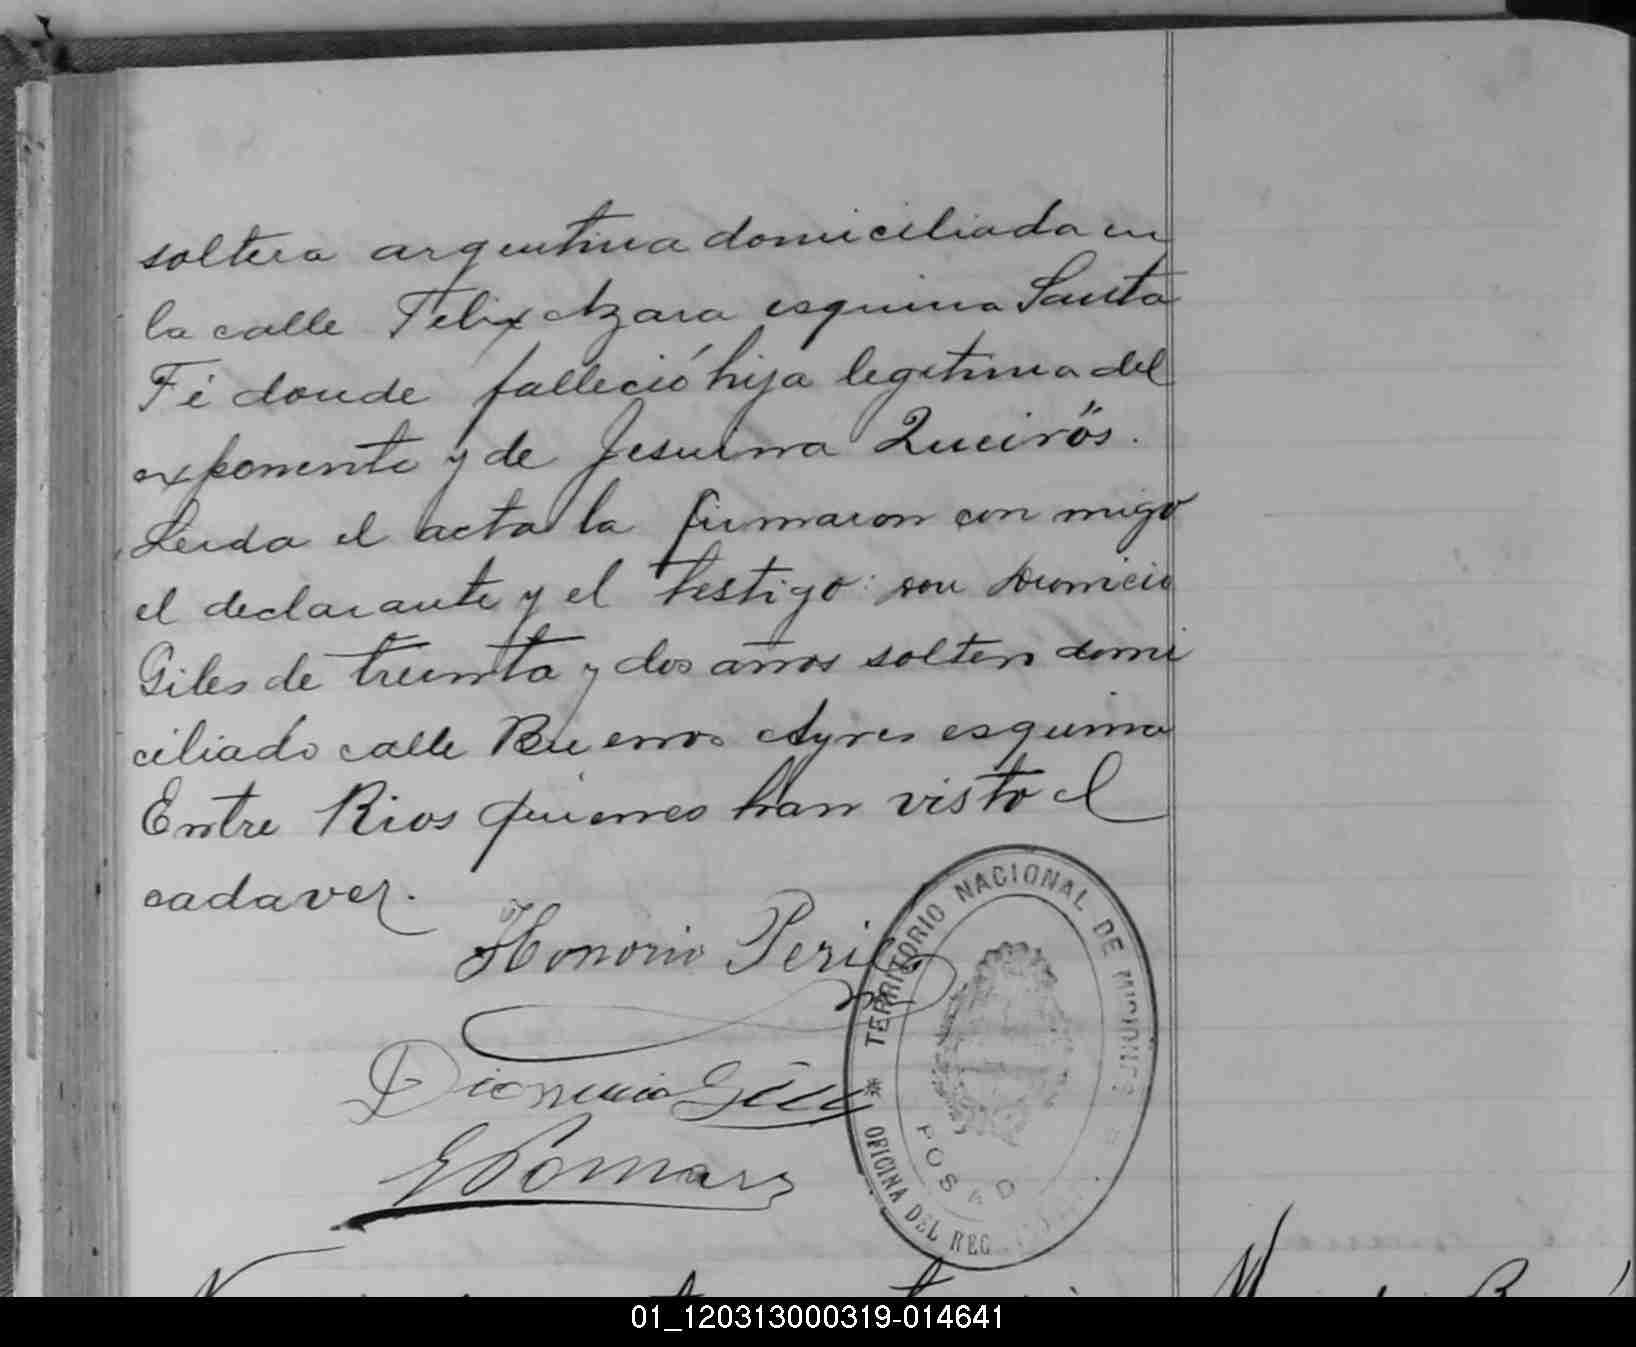 soltera argentina domiciliada en
la calle Felix Azara esquina Santa
Fé donde falleció hija legitima del
exponente y de Jesuina Queirös.
Leida el acta la firmaron con migo
el declarante y el testigo: don Dionicio
Giles de treinta y dos años soltero domi
ciliado calle Buenos Ayres esquina
Entre Rios quienes han visto el
cadaver.
Honorio Peri
TERRITORIO NACIONAL DE MISIONES
Dionicio Giles
POSAD
OFICINA DEL REG
01_120313000319-014641